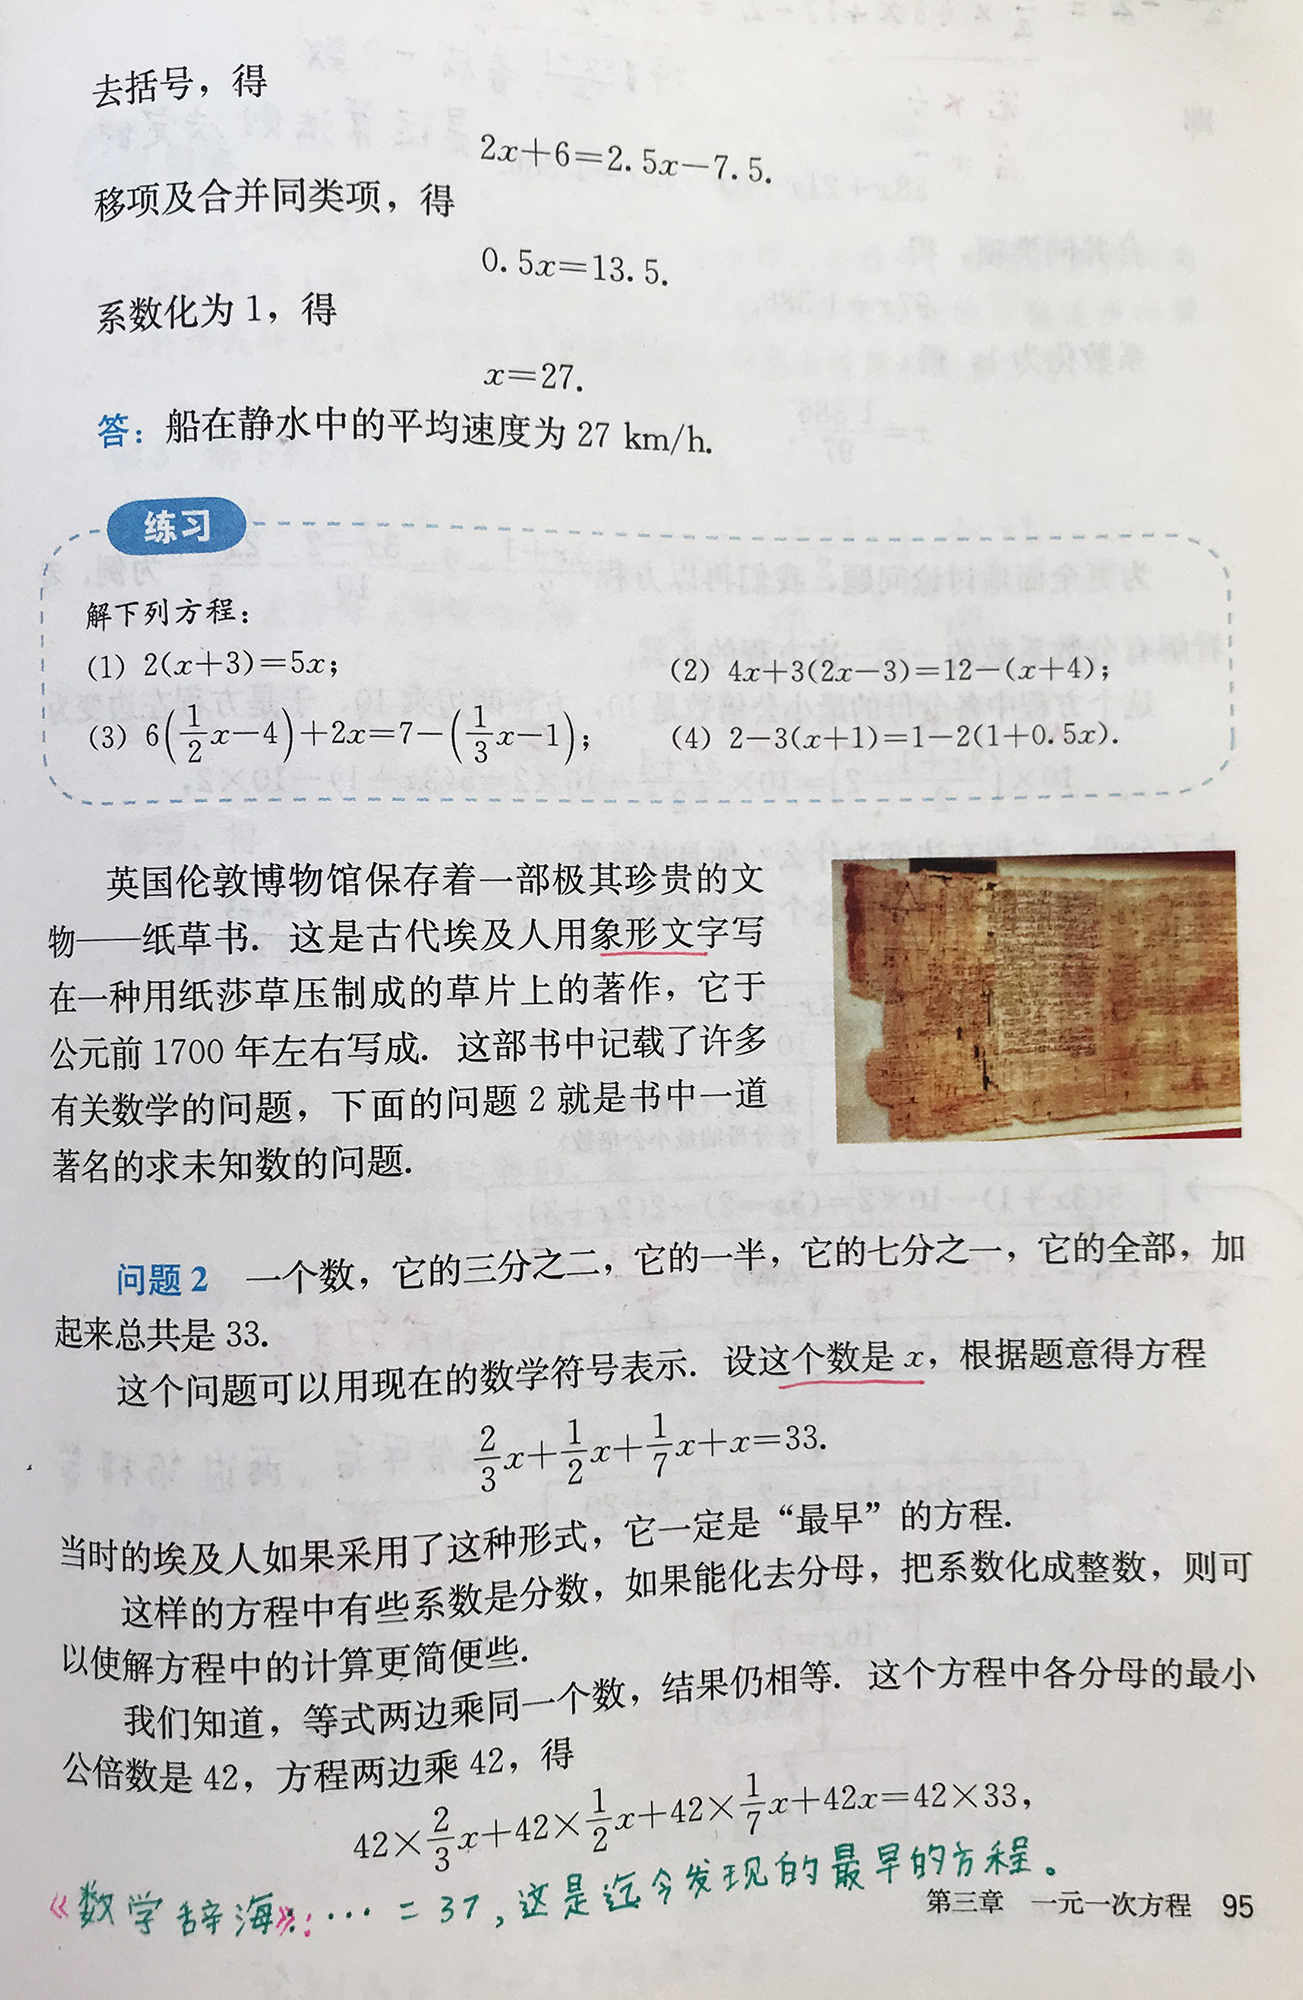 去括号，得
2x+6=2.5x-7.5.
移项及合并同类项，得
0.5x=13.5.
系数化为1，得
x=27.
答：船在静水中的平均速度为 27 km/h.
练习
解下列方程：
(1) 2(x+3)=5x；
(2) 4x+3(2x-3)=12-(x+4)；
(3) 6(1/2x-4)+2x=7-(1/3x-1)；
(4) 2-3(x+1)=1-2(1+0.5x).
英国伦敦博物馆保存着一部极其珍贵的文
物——纸草书．这是古代埃及人用象形文字写
在一种用纸莎草压制成的草片上的著作，它于
公元前 1700 年左右写成．这部书中记载了许多
有关数学的问题，下面的问题 2 就是书中一道
著名的求未知数的问题．
问题 2 一个数，它的三分之二，它的一半，它的七分之一，它的全部，加
起来总共是 33.
这个问题可以用现在的数学符号表示．设这个数是 x，根据题意得方程
2/3x+1/2x+1/7x+x=33.
当时的埃及人如果采用了这种形式，它一定是“最早”的方程．
这样的方程中有些系数是分数，如果能化去分母，把系数化成整数，则可
以使解方程中的计算更简便些．
我们知道，等式两边乘同一个数，结果仍相等．这个方程中各分母的最小
公倍数是 42，方程两边乘 42，得
42×2/3x+42×1/2x+42×1/7x+42x=42×33，
《数学辞海》：…=37，这是迄今发现的最早的方程。
第三章 一元一次方程 95